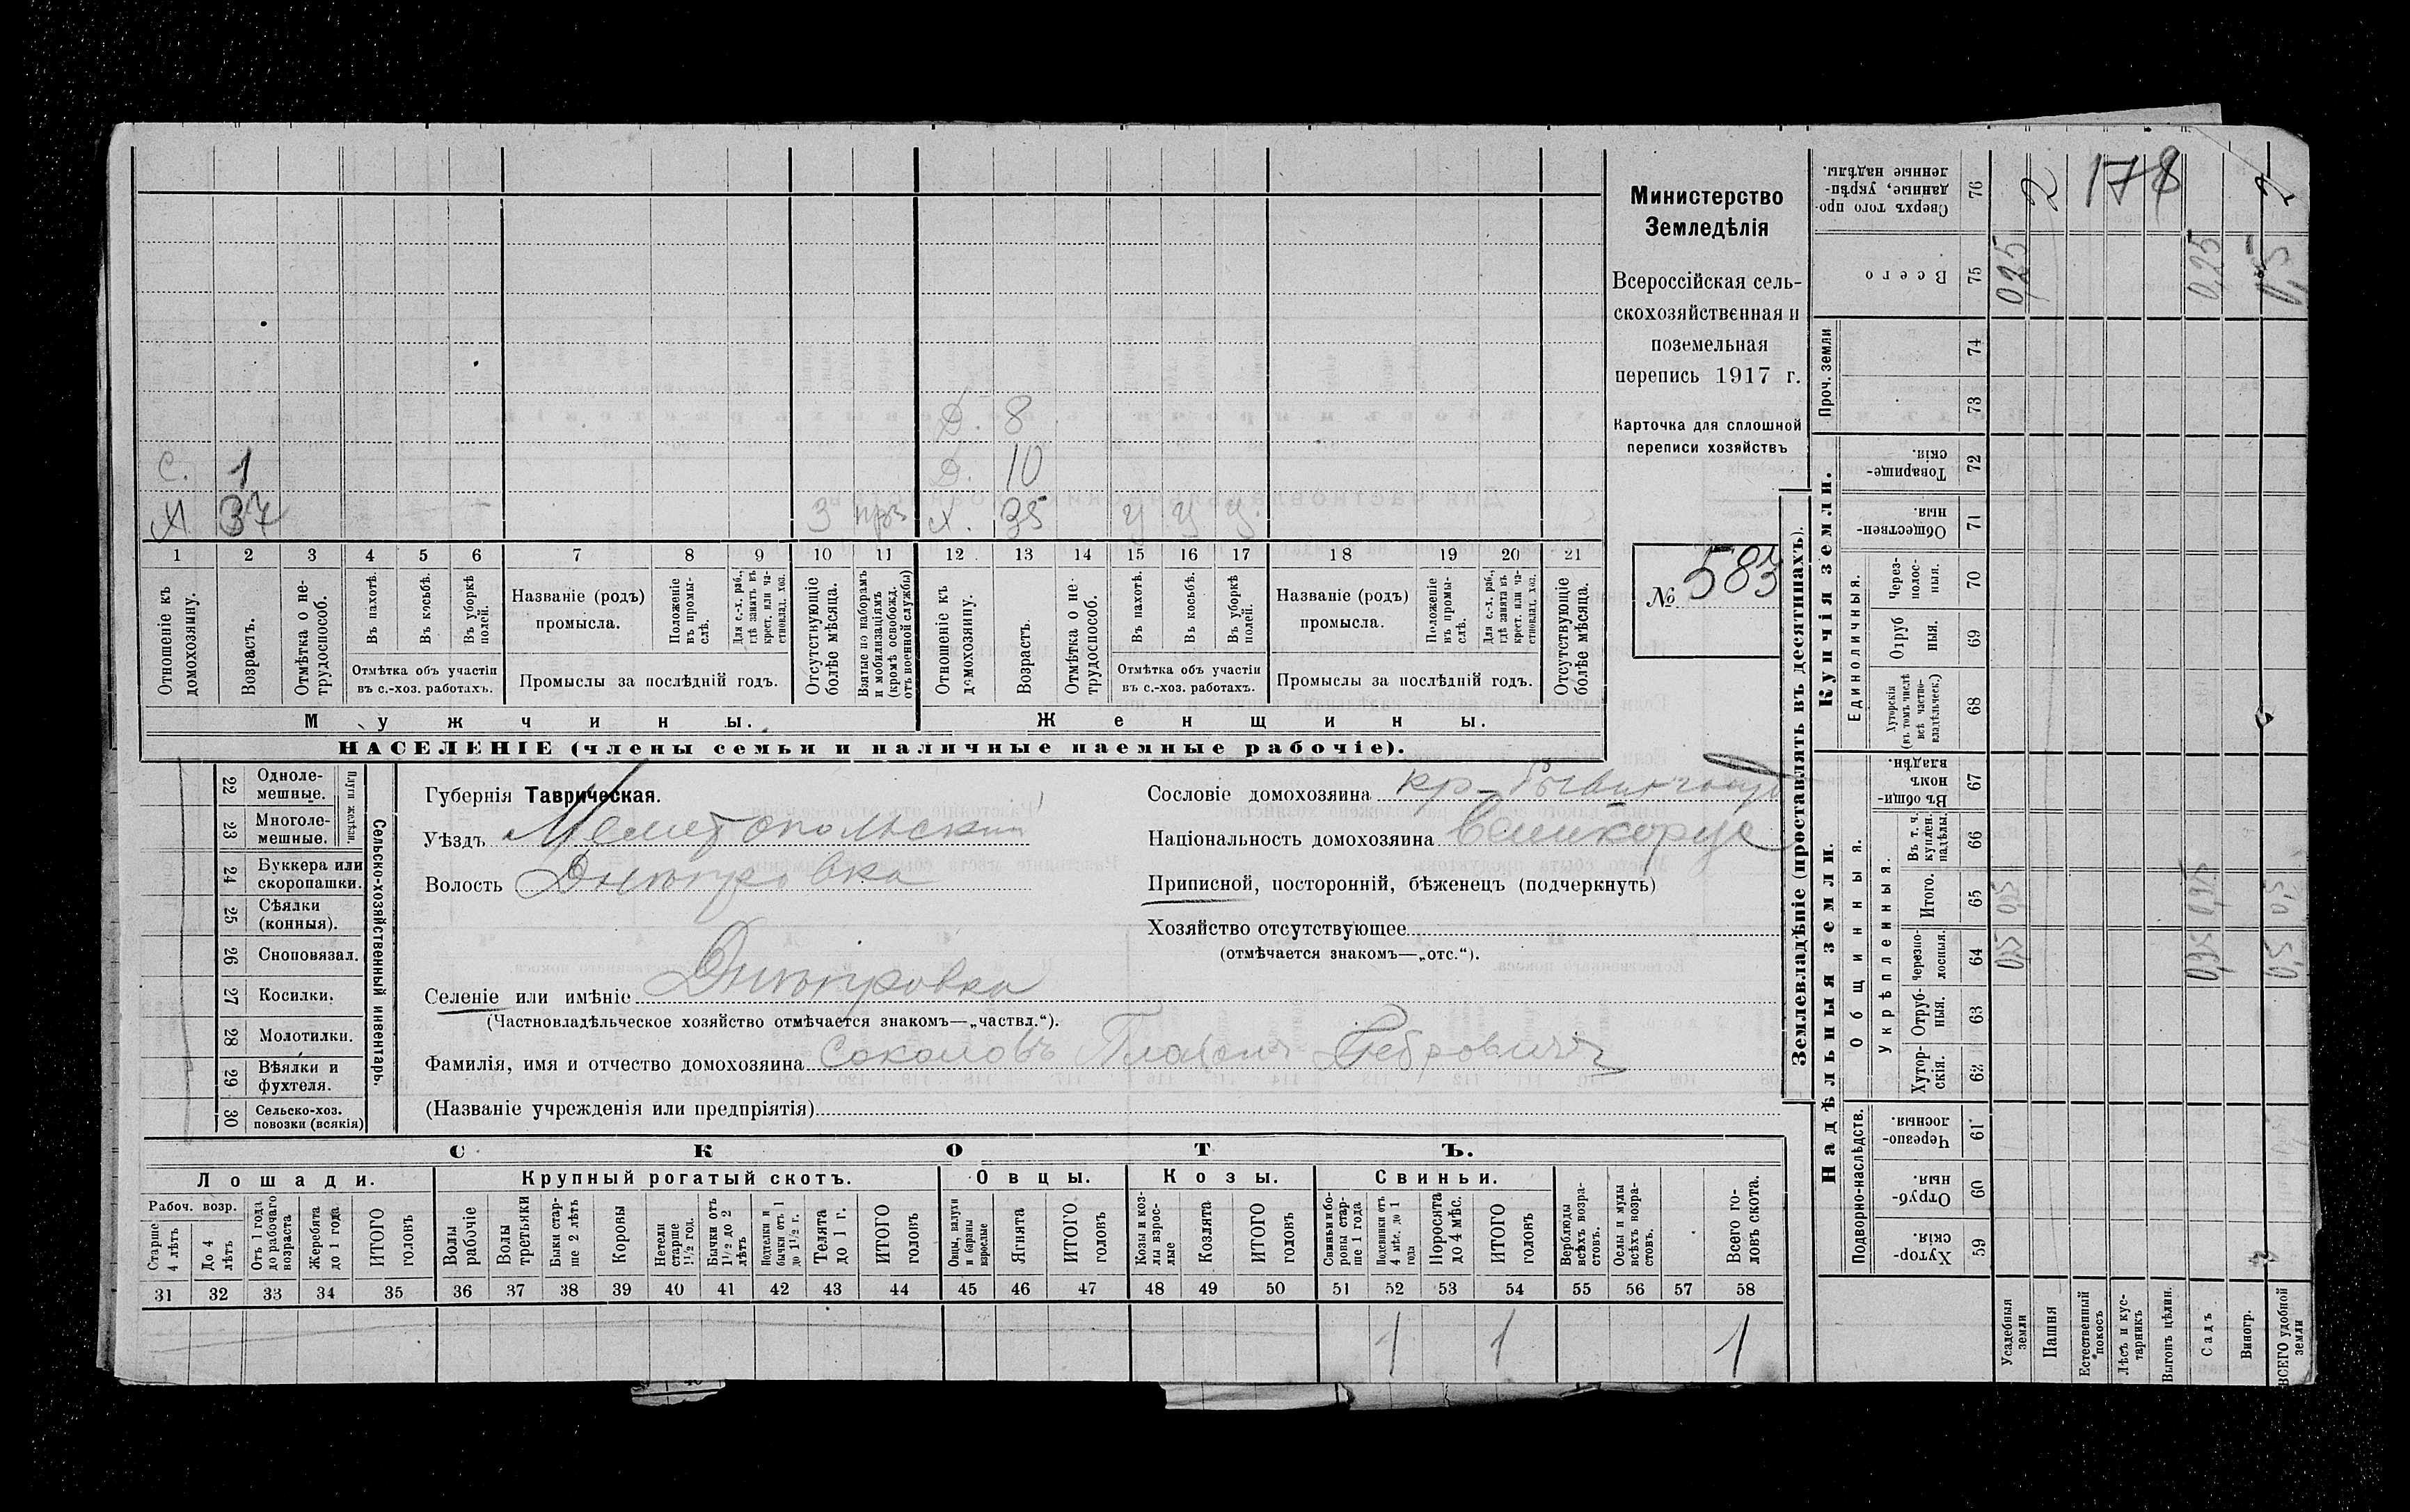 Министерство
Земледѣлія
Всероссійская сель-
скохозяйственная и
поземельная
перепись 1917 г.
Карточка для сплошной
переписи хозяйствъ
№ 583
Д. 8
С. 1 Д. 10
Х 37 3 прз Х. 35 У У У.
1 2 3 4 5 6 7 8 9 10 11 12 13 14 15 16 17 18 19 20 21
Отношеніе къ домохозяину.
Возрастъ.
Отмѣтка о не-трудоспособ.
Въ пахотѣ.
Въ косьбѣ.
Въ уборкѣ полей.
Отмѣтка объ участіи
въ с.-хоз. работахъ.
Названіе (родъ)
промысла.
Положеніе въ промы-слѣ.
Для с.-х. раб., гдѣ занятъ въ крест. или ча-стновлад. хоз.
Промыслы за послѣдній годъ.
Отсутствующіе болѣе мѣсяца.
Взятые по наборамъ и мобилизаціямъ (кромѣ освобожд. отъ военной службы)
Отношеніе къ домохозяину.
Возрастъ.
Отмѣтка о не-трудоспособ.
Въ пахотѣ.
Въ косьбѣ.
Въ уборкѣ полей.
Отмѣтка объ участіи
въ с.-хоз. работахъ.
Названіе (родъ)
промысла.
Положеніе въ промы-слѣ.
Для с.-х. раб., гдѣ занята въ крест. или ча-стновлад. хоз.
Промыслы за послѣдній годъ.
Отсутствующіе болѣе мѣсяца.
Мужчины. Женщины.
НАСЕЛЕНІЕ (члены семьи и наличные наемные рабочіе).
Сельско-хозяйственный инвентарь.
Плуги желѣзн.
22 Одноле-мешные.
23 Многоле-мешные.
24 Буккера или скоропашки.
25 Сѣялки (конныя).
26 Сноповязал.
27 Косилки.
28 Молотилки.
29 Вѣялки и фухтеля.
30 Сельско-хоз. повозки (всякія)
Губернія Таврическая.
Уѣздъ Мелитопольский
Волость Днѣпровка
Селеніе или имѣніе Днѣпровка
(Частновладѣльческое хозяйство отмѣчается знакомъ—„частвл.“).
Фамилія, имя и отчество домохозяина Соколовъ Петровичъ
(Названіе учрежденія или предпріятія)
Сословіе домохозяина кр-
Національность домохозяина Великорус
Приписной, посторонній, бѣженецъ (подчеркнуть)
Хозяйство отсутствующее
(отмѣчается знакомъ—„отс.“).
СКОТЪ.
Лошади. Крупный рогатый скотъ. Овцы. Козы. Свиньи.
Рабоч. возр.
Старше 4 лѣтъ
До 4 лѣтъ
Отъ 1 года до рабочаго возраста
Жеребята до 1 года
ИТОГО головъ
Волы рабочіе
Волы третьяки
Быки стар-ше 2 лѣтъ
Коровы
Нетели старше 1½ год.
Бычки отъ 1½ до 2 лѣтъ
Подтелки и бычки отъ 1 до 1½ г.
Телята до 1 г.
ИТОГО головъ
Овцы, валухи и бараны взрослые
Ягнята
ИТОГО головъ
Козы и коз-лы взрос-лые
Козлята
ИТОГО головъ
Свиньи и бо-ровы стар-ше 1 года
Подсвинки отъ 4 мѣс. до 1 года
Поросята до 4 мѣс.
ИТОГО головъ
Верблюды всѣхъ возра-стовъ.
Ослы и мулы всѣхъ возра-стовъ.
Всего го-ловъ скота.
31 32 33 34 35 36 37 38 39 40 41 42 43 44 45 46 47 48 49 50 51 52 53 54 55 56 57 58
1 1 1
Землевладѣніе (проставлять въ десятинахъ).
Сверхъ того про-данные, укрѣп-ленные надѣлы. 76 2 178 2
Всего 75 0,25 0,25 0,5
Купчія земли.
Проч. земли
74
73
Товарище-скія. 72
Обществен-ныя. 71
Единоличныя.
Через-полос-ныя. 70
Отруб ныя. 69
Хуторскія (въ томъ числѣ всѣ частно-владѣльческ.) 68
Надѣльныя земли.
Общинныя.
Въ общи-номъ владѣн. 67
Укрѣпленныя.
Въ т. ч. куплен. надѣлы. 66
Итого. 65
Черезпо-лосныя. 64
Отруб-ныя. 63
Хутор-скія. 62
Подворно-наслѣдств.
Черезпо-лосныя 61
Отруб-ныя. 60
Хутор-скія. 59
Усадебныя земли
Пашня
Естественный покосъ
Лѣсъ и кус-тарникъ
Выгонъ цѣлин.
Садъ
Виногр.
ВСЕГО удобной земли